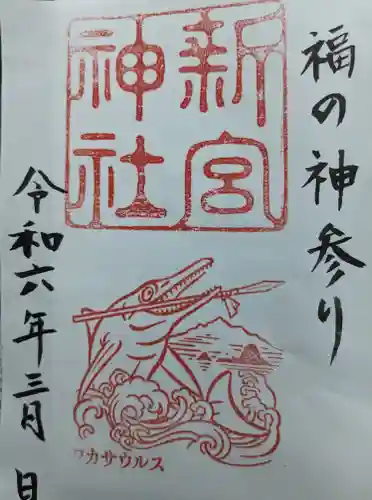 福の神参り
新宮
神社
令和六年三月 日
ワカサウルス